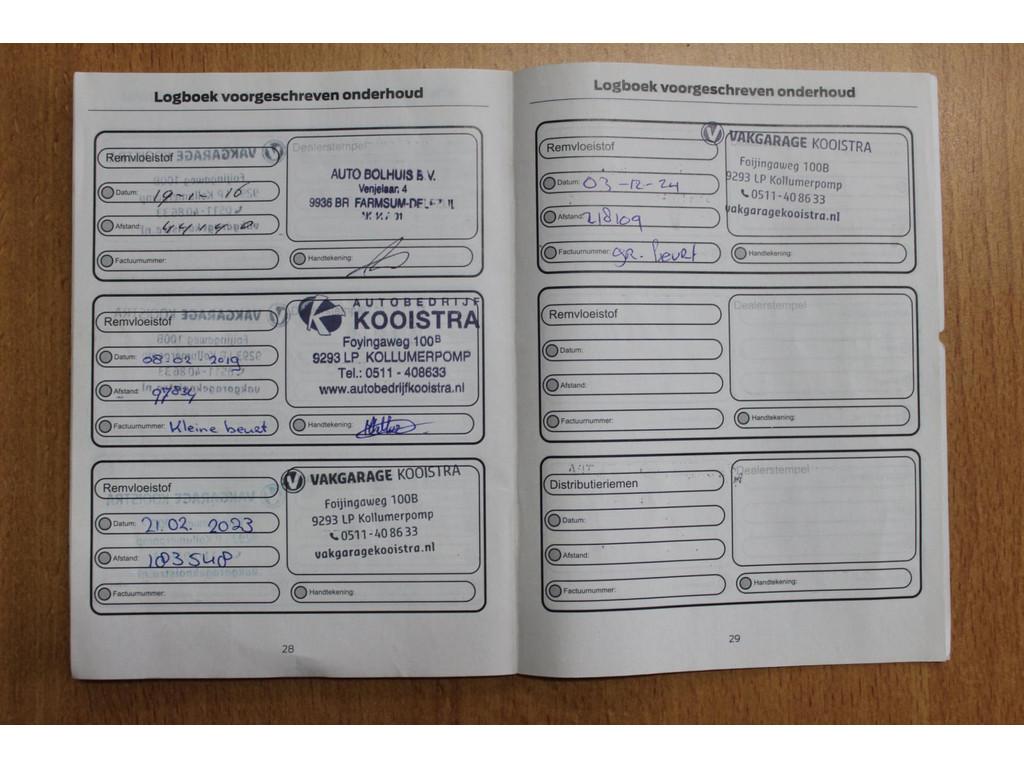 Logboek voorgeschreven onderhoud
Remvloeistof
Dealerstempel
Datum:
AUTO BOLHUIS B.V.
Venjelaar. 4
9936 BR FARMSUM
Afstand:
Factuurnummer:
Handtekening:
Remvloeistof
AUTOBEDRIJF
KOOISTRA
Foyingaweg 100B
9293 LP KOLLUMERPOMP
Tel.: 0511 - 408633
www.autobedrijfkooistra.nl
Datum: 08-02-2019
Afstand: 97834
Factuurnummer: Kleine beurt
Handtekening:
Remvloeistof
VAKGARAGE KOOISTRA
Foijingaweg 100B
9293 LP Kollumerpomp
0511-40 86 33
vakgaragekooistra.nl
Datum: 21.02. 2023
Afstand: 183548
Factuurnummer:
Handtekening:
28
Logboek voorgeschreven onderhoud
Remvloeistof
VAKGARAGE KOOISTRA
Foijingaweg 100B
9293 LP Kollumerpomp
0511-40 86 33
vakgaragekooistra.nl
Datum: 03-12-24
Afstand: 218109
Factuurnummer: gr. beurt
Handtekening:
Remvloeistof
Dealerstempel
Datum:
Afstand:
Factuurnummer:
Handtekening:
Distributieriemen
Dealerstempel
Datum:
Afstand:
Factuurnummer:
Handtekening:
29